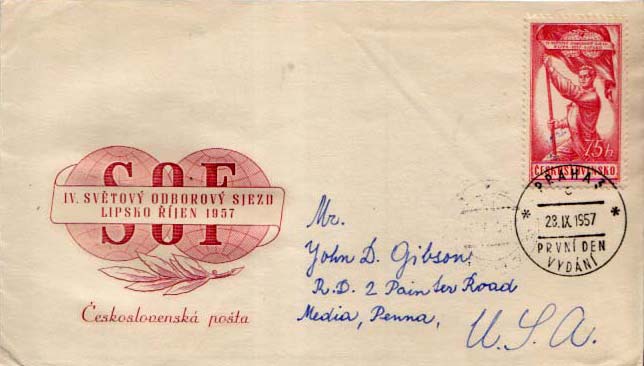 SOF
IV. SVĚTOVÝ ODBOROVÝ SJEZD
LIPSKO ŘÍJEN 1957
Československá pošta
75h
ČESKOSLOVENSKO
PRAHA 3
C
* 28.IX.1957 *
PRVNÍ DEN
VYDÁNÍ
Mr.
John D. Gibson,
R.D. 2 Painter Road
Media, Penna,
U.S.A.